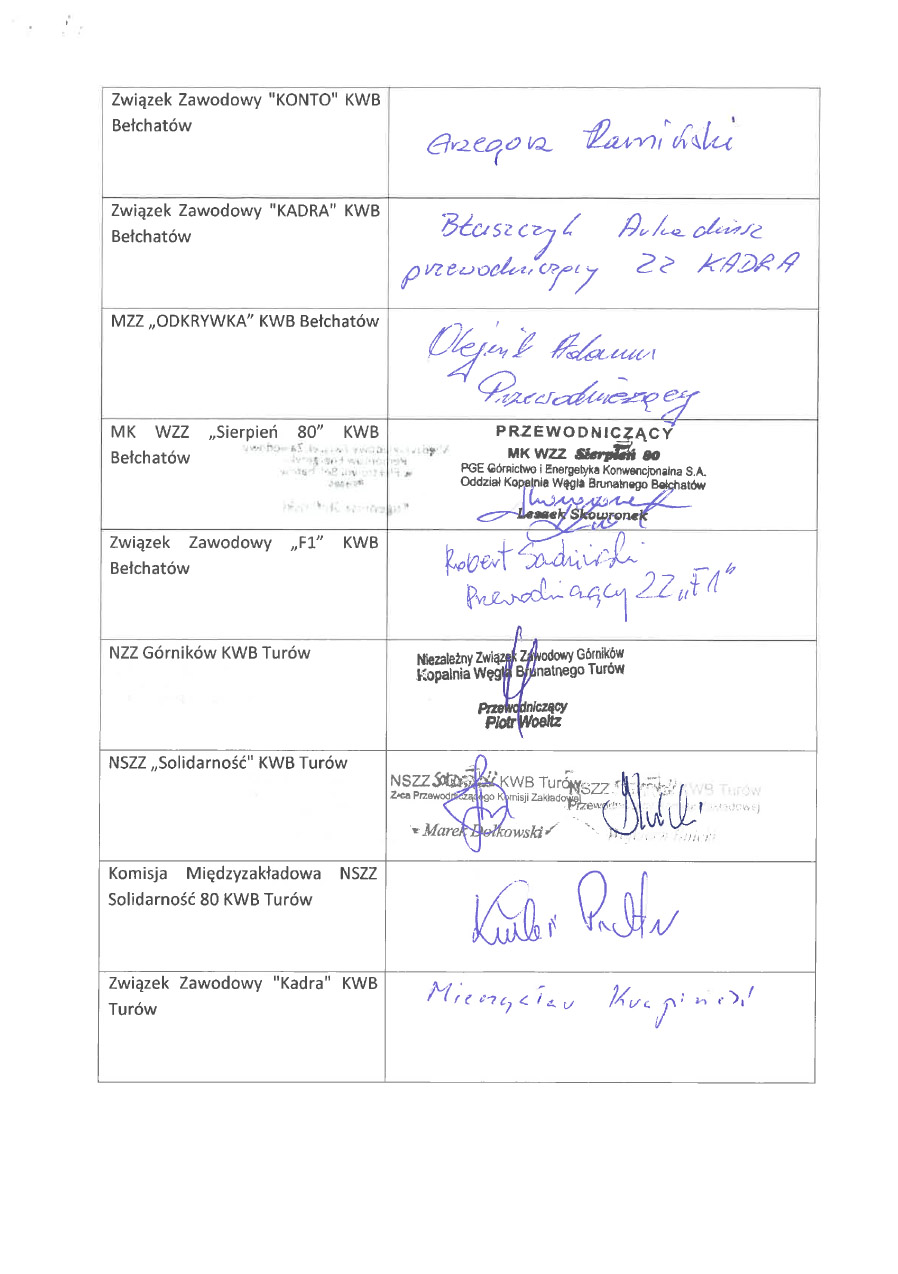 Związek Zawodowy "KONTO" KWB
Bełchatów
Grzegorz Kamiński
Związek Zawodowy "KADRA" KWB
Bełchatów
Błaszczyk Arkadiusz
przewodniczący ZZ KADRA
MZZ „ODKRYWKA” KWB Bełchatów
Olejnik Adam
Przewodniczący
MK WZZ „Sierpień 80” KWB
Bełchatów
PRZEWODNICZĄCY
MK WZZ Sierpień 80
PGE Górnictwo i Energetyka Konwencjonalna S.A.
Oddział Kopalnia Węgla Brunatnego Bełchatów
Leszek Skowronek
Związek Zawodowy „F1” KWB
Bełchatów
Robert
Przewodniczący ZZ „F1”
NZZ Górników KWB Turów
Niezależny Związek Zawodowy Górników
Kopalnia Węgla Brunatnego Turów
Przewodniczący
Piotr Woeltz
NSZZ „Solidarność" KWB Turów
NSZZ KWB Turów
Z-ca Przewodniczącego Komisji Zakładowej
Marek Dołkowski
NSZZ KWB Turów
Komisja Międzyzakładowa NSZZ
Solidarność 80 KWB Turów
Związek Zawodowy "Kadra" KWB
Turów
Mieczysław